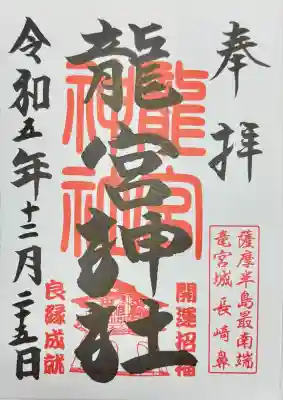 奉拝
龍宮神社
龍宮神社
薩摩半島最南端
竜宮城 長崎鼻
開運招福
良縁成就
令和五年十二月二十五日